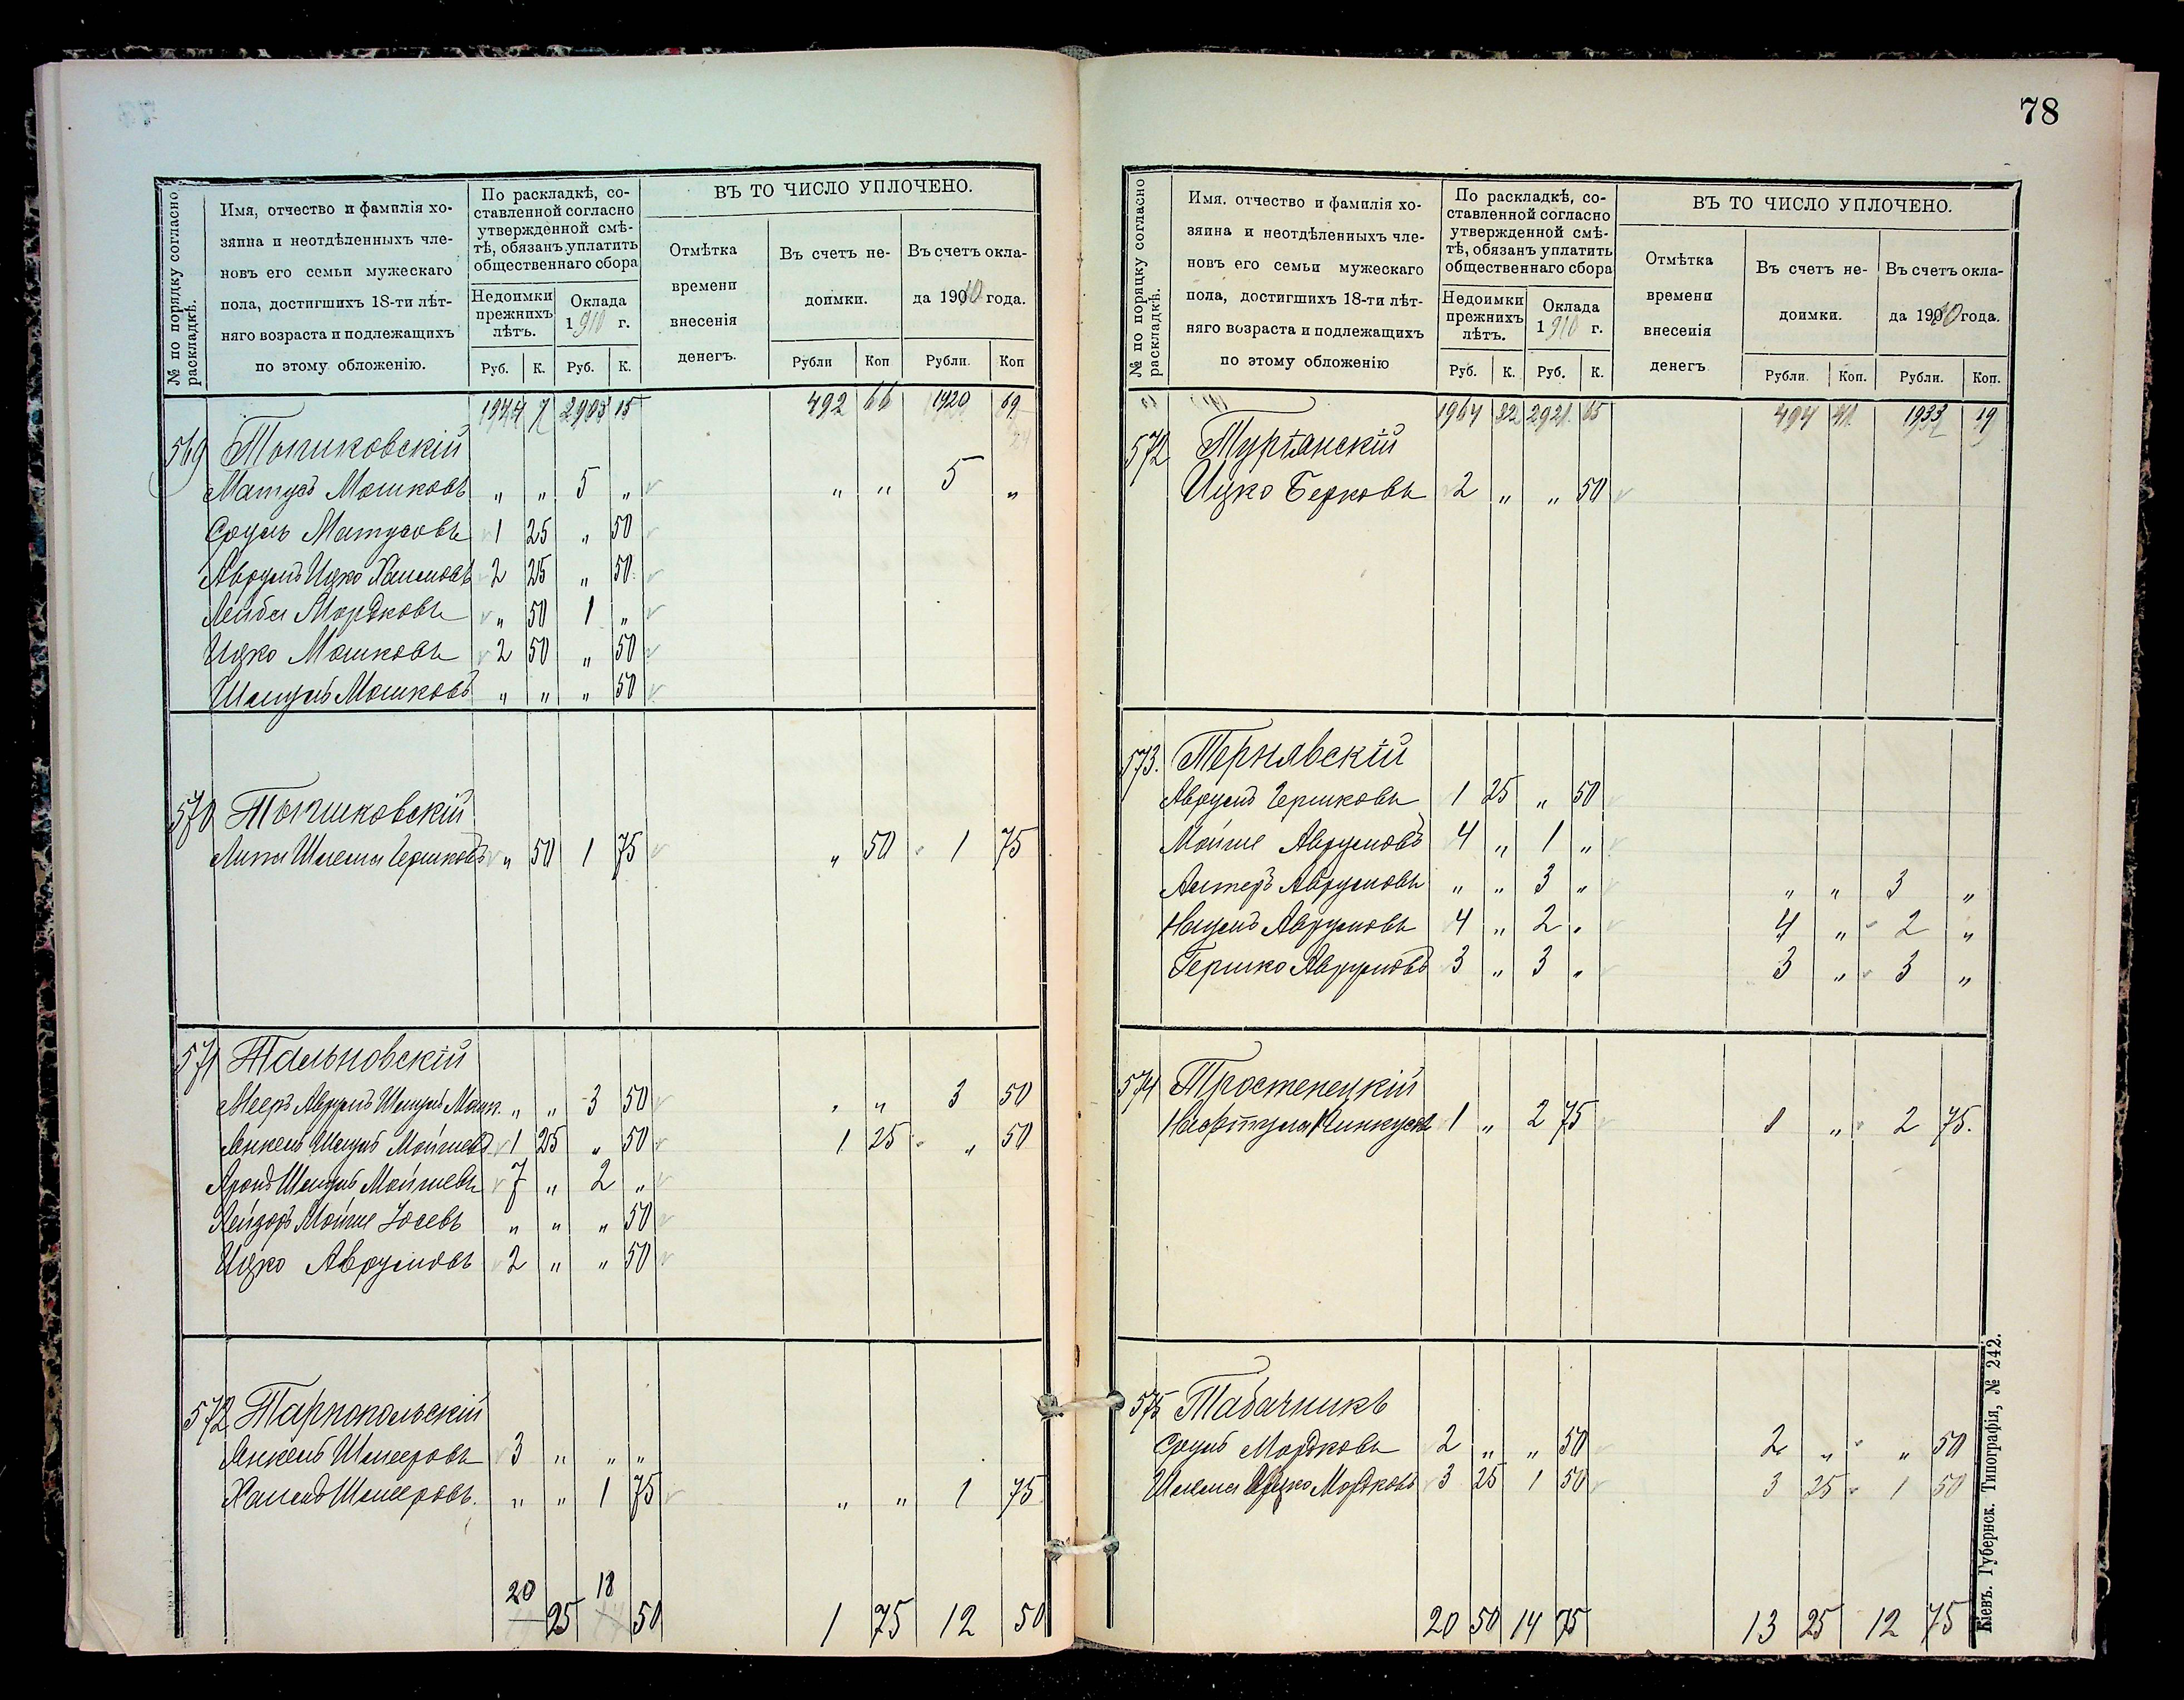 78
№ по порядку согласно раскладкѣ.
Имя, отчество и фамилія хо-
зяина и неотдѣленныхъ чле-
новъ его семьи мужескаго
пола, достигшихъ 18-ти лѣт-
няго возраста и подлежащихъ
по этому обложенію.
По раскладкѣ, со-
ставленной согласно
утвержденной смѣ-
тѣ, обязанъ уплатить
общественнаго сбора
Недоимки
прежнихъ
лѣтъ.
Оклада
1910 г.
Руб. К. Руб. К.
ВЪ ТО ЧИСЛО УПЛОЧЕНО.
Отмѣтка
времени
внесенія
денегъ.
Въ счетъ не-
доимки.
Въ счетъ окла-
да 1910 года.
Рубли Коп Рубли. Коп
1944 2903 15 492 66 1920 69
569 Топиковскій
Матусъ Мошковъ „ „ 5 „ „ „ 5 „
Сруль Матусовъ 1 25 „ 50
Аврумъ Ицко Хаимовъ 2 25 „ 50
Лейба Мордковъ „ 50 1 „
Ицко Мошковъ 2 50 „ 50
Шмуль Мошковъ „ „ „ 50
570
Липа Шлема Гершковъ „ 50 1 75 „ 50 1 75
571 Тальновскій
Мееръ Аврумъ Шмуль Мошк. „ „ 3 50 „ „ 3 50
Янкель Шмуль Мойшевъ 1 25 „ 50 1 25 „ 50
Аронъ Шмуль Мойшевъ 7 „ 2 „
Лейзоръ Мойше Іосевъ „ „ „ 50
Ицко Аврумовъ 2 „ „ 50
572 Тарнопольскій
Янкель Шмееровъ 3 „ „ „
Хаимъ Шмееровъ. „ „ 1 75 „ „ 1 75
20 25 18 50 1 75 12 50
№ по порядку согласно раскладкѣ.
Имя. отчество и фамилія хо-
зяина и неотдѣленныхъ чле-
новъ его семьи мужескаго
пола, достигшихъ 18-ти лѣт-
няго возраста и подлежащихъ
по этому обложенію
По раскладкѣ, со-
ставленной согласно
утвержденной смѣ-
тѣ, обязанъ уплатить
общественнаго сбора
Недоимки
прежнихъ
лѣтъ.
Оклада
1910 г.
Руб. К. Руб. К.
ВЪ ТО ЧИСЛО УПЛОЧЕНО.
Отмѣтка
времени
внесенія
денегъ
Въ счетъ не-
доимки.
Въ счетъ окла-
да 1910 года.
Рубли. Коп. Рубли. Коп.
1964 32 2921 65 494 41 1933 19
572 Турянскій
Ицко Берковъ 2 „ „ 50
573. Тернавскій
Аврумъ Гершковъ 1 25 „ 50
Мойше Аврумовъ 4 „ 1 „
Алтеръ Аврумовъ „ „ 3 „ „ „ 3 „
Нахумъ Аврумовъ 4 „ 2 „ 4 „ 2 „
Гершко Аврумовъ 3 „ 3 „ 3 „ 3 „
574 Тростенецкій
Нафтула Пинкусовъ 1 „ 2 75 1 „ 2 75.
575 Табачникъ
Сруль Мордковъ 2 „ „ 50 2 „ „ 50
Шлема Ицко Мордковъ 3 25 1 50 3 25 1 50
20 50 14 75 13 25 12 75
Кіевъ. Губернск. Типографія, № 242.